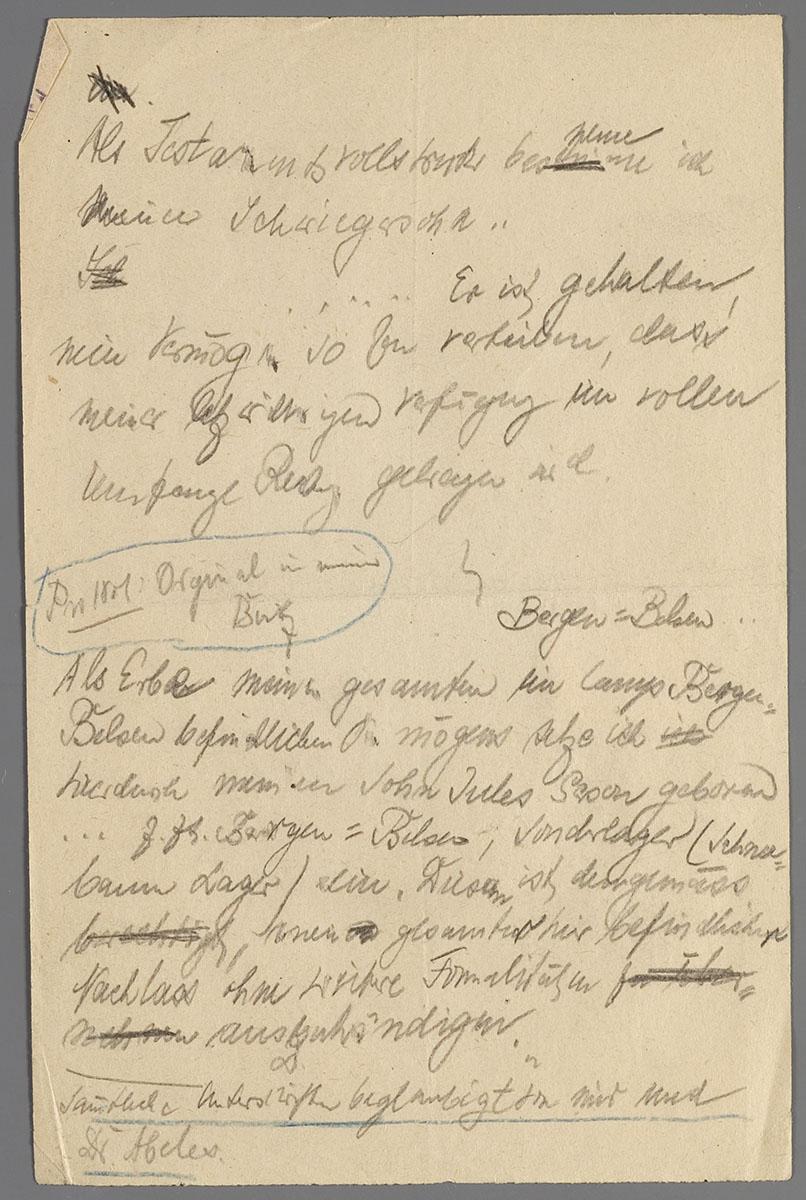 Als Testamentsvollstrecker bestimme ich
nenne
meinen Schwiegersohn ..
Ich
.... Er ist gehalten,
mein Vermögen so zu verteilen, dass
meiner letztwilligen Verfügung im vollen
Umfange Rechng getragen wird.
Original in meinem
Besitz
Bergen=Belsen ..
Als Erbe meines gesamten im Camp Bergen=
Belsen befindlichen Vermögens setze ich
hierdurch meinen Sohn Jules geboren
... z. Zt. Bergen=Belsen, Sonderlager (
Lager) ein. Diesem ist demgemäss
berechtigt, meinen gesamten hier befindlichen
Nachlass ohne weitere Formalitäten zu über=
nehmen auszuhändigen.
"
Sämtliche Unterschriften beglaubigt von mir und
Dr Abeles.